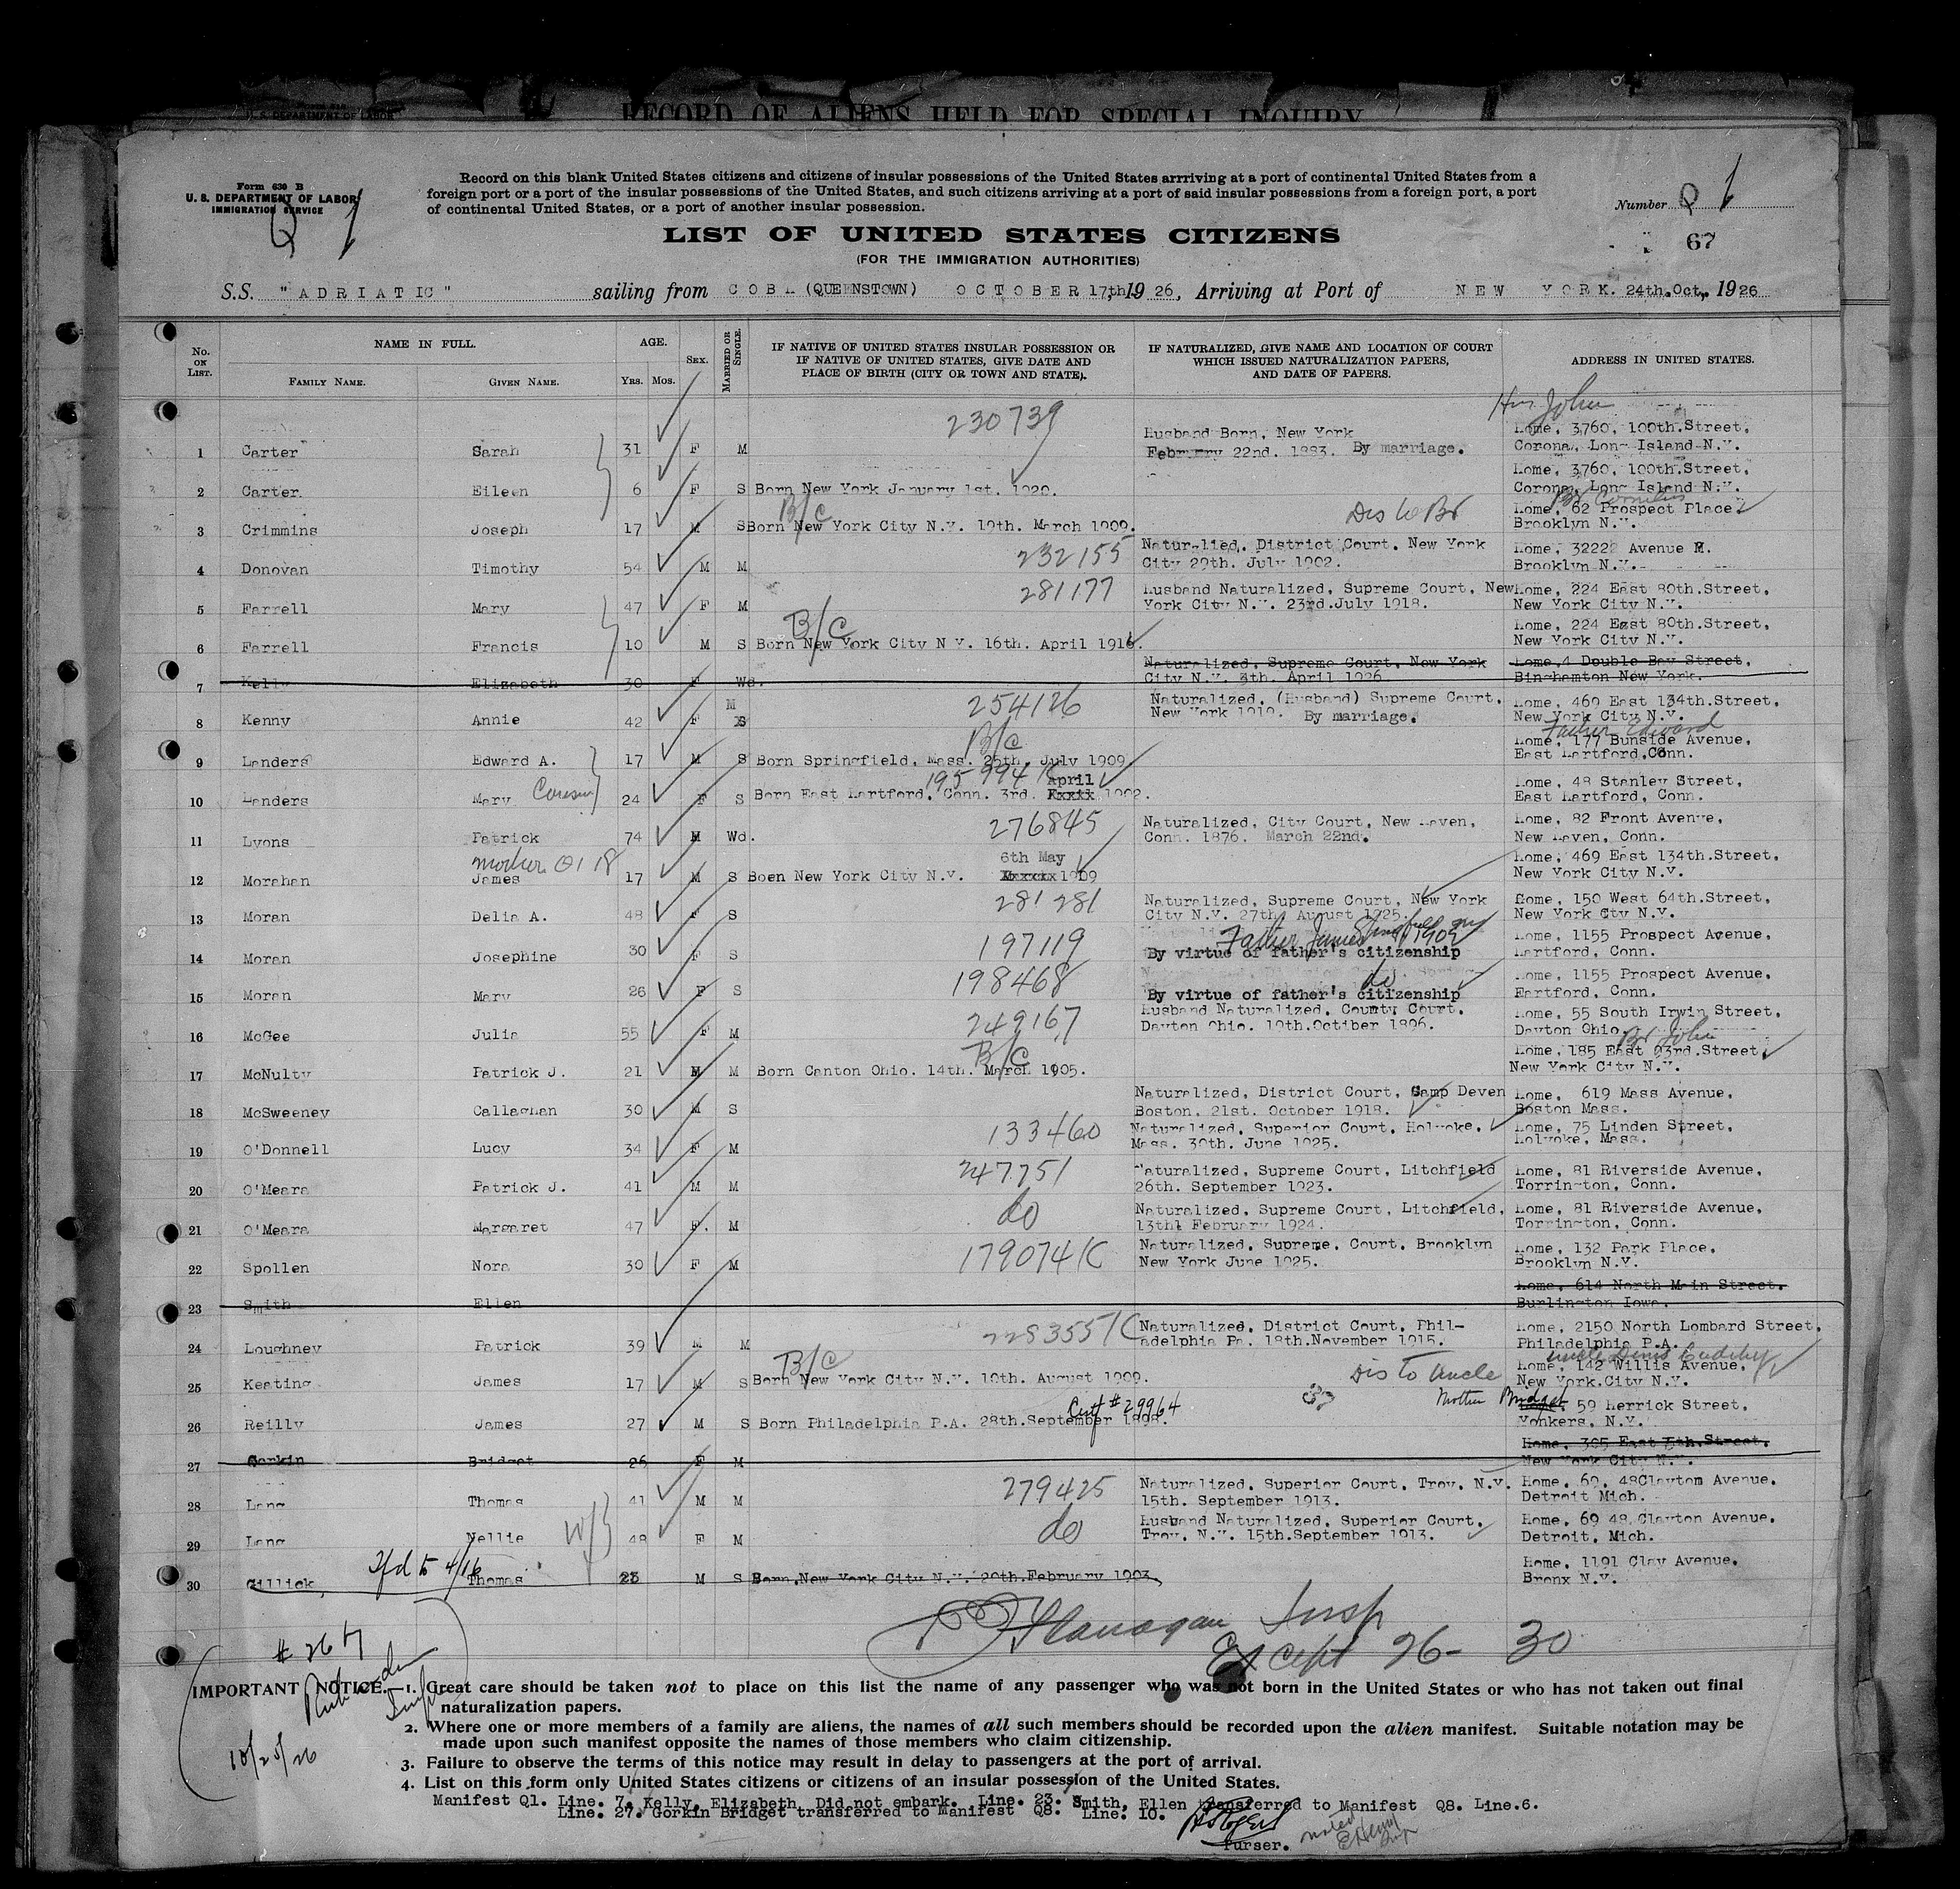 RECORD OF ALIENS HELD FOR SPECIAL INQUIRY
Form 630 B
U. S. DEPARTMENT OF LABOR
IMMIGRATION SERVICE
Q 1
Record on this blank United States citizens and citizens of insular possessions of the United States arrriving at a port of continental United States from a
foreign port or a port of the insular possessions of the United States, and such citizens arriving at a port of said insular possessions from a foreign port, a port
of continental United States, or a port of another insular possession.
Number Q 1
67
LIST OF UNITED STATES CITIZENS
(FOR THE IMMIGRATION AUTHORITIES)
S.S. "ADRIATIC" sailing from COBH (QUEENSTOWN) OCTOBER 17th, 1926, Arriving at Port of NEW YORK. 24th. Oct, 1926
No. ON LIST. NAME IN FULL. FAMILY NAME. GIVEN NAME. AGE. YRS. MOS. SEX. MARRIED OR SINGLE.
IF NATIVE OF UNITED STATES INSULAR POSSESSION OR
IF NATIVE OF UNITED STATES, GIVE DATE AND
PLACE OF BIRTH (CITY OR TOWN AND STATE).
IF NATURALIZED, GIVE NAME AND LOCATION OF COURT
WHICH ISSUED NATURALIZATION PAPERS,
AND DATE OF PAPERS.
ADDRESS IN UNITED STATES.
230739 John
Husband Born, New York Home, 3760, 100th.Street,
1 Carter Sarah 31 F M February 22nd. 1883. By marriage. Corona, Long Island N.Y.
Home, 3760, 100th.Street,
2 Carter Eileen 6 F S Born New York January 1st. 1920. Corona, Long Island N.Y.
B/C Dis to Br Br Cornelius
Home, 62 Prospect Place,
3 Crimmins Joseph 17 M S Born New York City N.Y. 19th. March 1909. Brooklyn N.Y.
232155 Naturalied, District Court, New York Home, 3222 Avenue
4 Donovan Timothy 54 M M City 29th. July 1902. Brooklyn N.Y.
281177 Husband Naturalized, Supreme Court, New Home, 224 East 80th.Street,
5 Farrell Mary 47 F M York City N.Y. 23rd.July 1918. New York City N.Y.
B/C Home, 224 East 80th.Street,
6 Farrell Francis 10 M S Born New York City N Y. 16th. April 1916. New York City N.Y.
Naturalized, Supreme Court, New York Home,4 Double Bay Street,
7 Kelly Elizabeth 30 F Wd. City N.Y. April 1926. Binghamton New York.
254126 Naturalized, (Husband) Supreme Court, Home, 469 East 134th.Street,
8 Kenny Annie 42 F M New York 1919. By marriage. New York City N.Y.
B/C Father Edward
Home, 177 Bunside Avenue,
9 Landers Edward A. 17 M S Born Springfield, Mass. 25th. July 1909 East Hartford, Conn.
195994 K April Home, 48 Stanley Street,
10 Landers Mary Cousin 24 F S Born East Hartford, Conn. 3rd. 1902. East Hartford, Conn.
276845 Naturalized, City Court, New Haven, Home, 82 Front Avenue,
11 Lyons Patrick 74 M Wd. Conn. 1876. March 22nd. New Haven, Conn.
mother Q1 18 6th May Home, 469 East 134th.Street,
12 Morahan James 17 M S Boen New York City N.Y. 1909 New York City N.Y.
281281 Naturalized, Supreme Court, New York Home, 150 West 64th.Street,
13 Moran Delia A. 48 F S City N.Y. 27th August 1925. New York City N.Y.
Father James 1902
197119 Home, 1155 Prospect Avenue,
14 Moran Josephine 30 F S By virtue of father's citizenship Hartford, Conn.
198468 do Home, 1155 Prospect Avenue,
15 Moran Mary 26 F S By virtue of father's citizenship Hartford, Conn.
249167 Husband Naturalized, County Court, Home, 55 South Irwin Street,
16 McGee Julia 55 F M Dayton Ohio. 19th.Octiber 1896. Dayton Ohio.
B/C Br John
Home, 185 East 93rd.Street,
17 McNulty Patrick J. 21 M M Born Canton Ohio. 14th. March 1905. New York City N.Y.
Naturalized, District Court, Camp Deven Home, 619 Mass Avenue,
18 McSweeney Callaghan 30 M S Boston, 21st. October 1918. Boston Mass.
133460 Naturalized, Superior Court, Holyoke, Home, 75 Linden Street,
19 O'Donnell Lucy 34 F M Mass. 30th. June 1925. Holyoke, Mass.
247751 Naturalized, Supreme Court, Litchfield Home, 81 Riverside Avenue,
20 O'Meara Patrick J. 41 M M 26th. September 1923. Torrington, Conn.
do Naturalized, Supreme Court, Litchfield, Home, 81 Riverside Avenue,
21 O'Meara Margaret 47 F. M 13th February 1924. Torrington, Conn.
179074 K Naturalized, Supreme, Court, Brooklyn Home, 132 Park Place,
22 Spollen Nora 30 F M New York June 1925. Brooklyn N.Y.
Home, 614 North Main Street.
23 Smith Ellen Burlington Iowa.
228355 K Naturalized, District Court, Phil- Home, 2150 North Lombard Street,
24 Loughney Patrick 39 M M adelphia Pa. 18th.November 1915. Philadelphia P.A.
B/C Dis to Uncle uncle Denis Cudihy
Home, 142 Willis Avenue,
25 Keating James 17 M S Born New York City N.Y. 10th. August 1909. New York.City N.Y.
Cert # 29964 Mother Bridget 59 Herrick Street,
26 Reilly James 27 M S Born Philadelphia P.A. 28th.September 1898. Yonkers, N.Y.
Home, 305 East Street,
27 Gorkin Bridget 26 F M New York City N.Y.
279425 Naturalized, Superior Court, Troy, N.Y. Home, 69, 48Clayton Avenue.
28 Lang Thomas 41 M M 15th. September 1913. Detroit Mich.
do Husband Naturalized, Superior Court, Home, 69 48 Clayton Avenue.
29 Lang Nellie 48 F M Troy, N.Y. 15th.September 1913. Detroit, Mich.
Tfd to 4/16 Home, 1191 Clay Avenue.
30 Gillick, Thomas 23 M S Born,New York City N.Y. 20th.February 1903, Bronx N.Y.
Flanagan Insp
Except 26 - 30
# 26
10/25/26
IMPORTANT NOTICE.—1. Great care should be taken not to place on this list the name of any passenger who was not born in the United States or who has not taken out final
naturalization papers.
2. Where one or more members of a family are aliens, the names of all such members should be recorded upon the alien manifest. Suitable notation may be
made upon such manifest opposite the names of those members who claim citizenship.
3. Failure to observe the terms of this notice may result in delay to passengers at the port of arrival.
4. List on this form only United States citizens or citizens of an insular possession of the United States.
Manifest Q1. Line. 7. Kelly, Elizabeth Did not embark. Line. 23. Smith, Ellen transferred to Manifest Q8. Line.6.
Line. 27. Gorkin Bridget transferred to Manifest Q8. Line. 10.
Purser.
noted